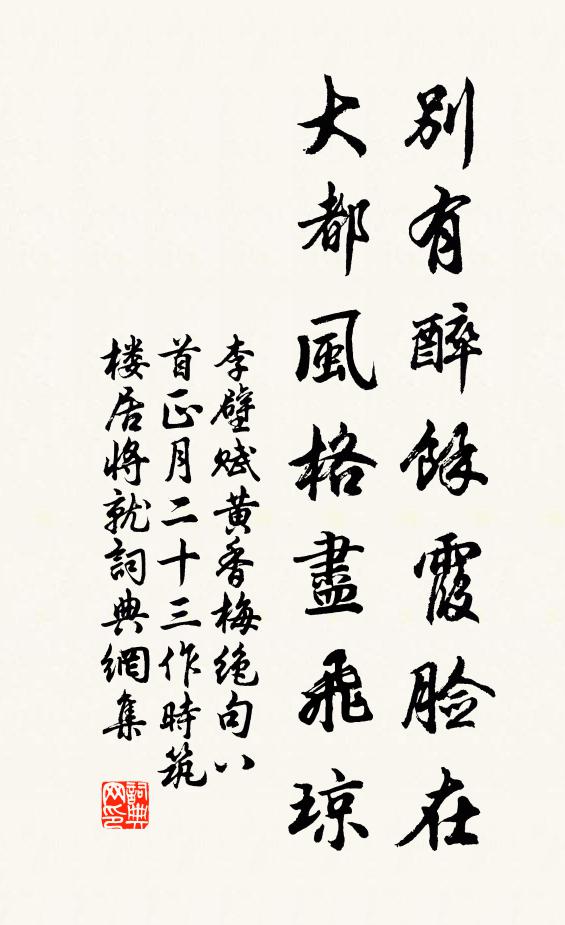 別有醉餘霞脸在
大都風格盡飛琼
李壁赋黄香梅绝句八
首正月二十三作時筑
楼居将就詞典網集
詞典
网印